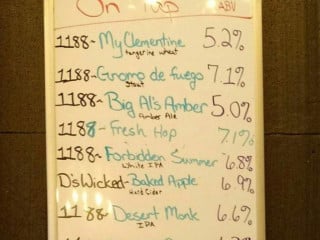 On TAP ABV
1188- My Clementine 5.2%
tangerine wheat
1188- Gnomo de fuego 7.1%
Stout
1188- Big Al's Amber 5.0%
Amber Ale
1188- Fresh Hop 7.1%
1188- Forbidden Summer 6.8%
White IPA
D's Wicked- Baked Apple 6.9%
Hard Cider
1188- Desert Monk 6.6%
IPA